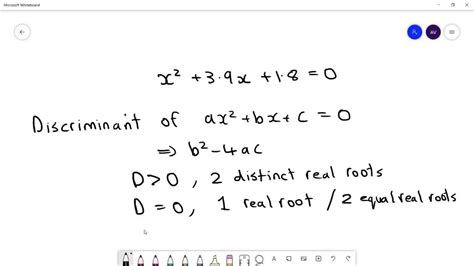 Microsoft Whiteboard
AV
x² + 3·9x + 1·8 = 0
Discriminant of ax² + bx + c = 0
⇒ b² - 4ac
D > 0 , 2 distinct real roots
D = 0 , 1 real root / 2 equal real roots